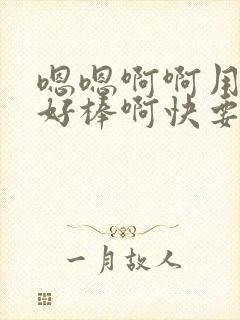 嗯嗯啊啊用
好棒啊快要
一月故人